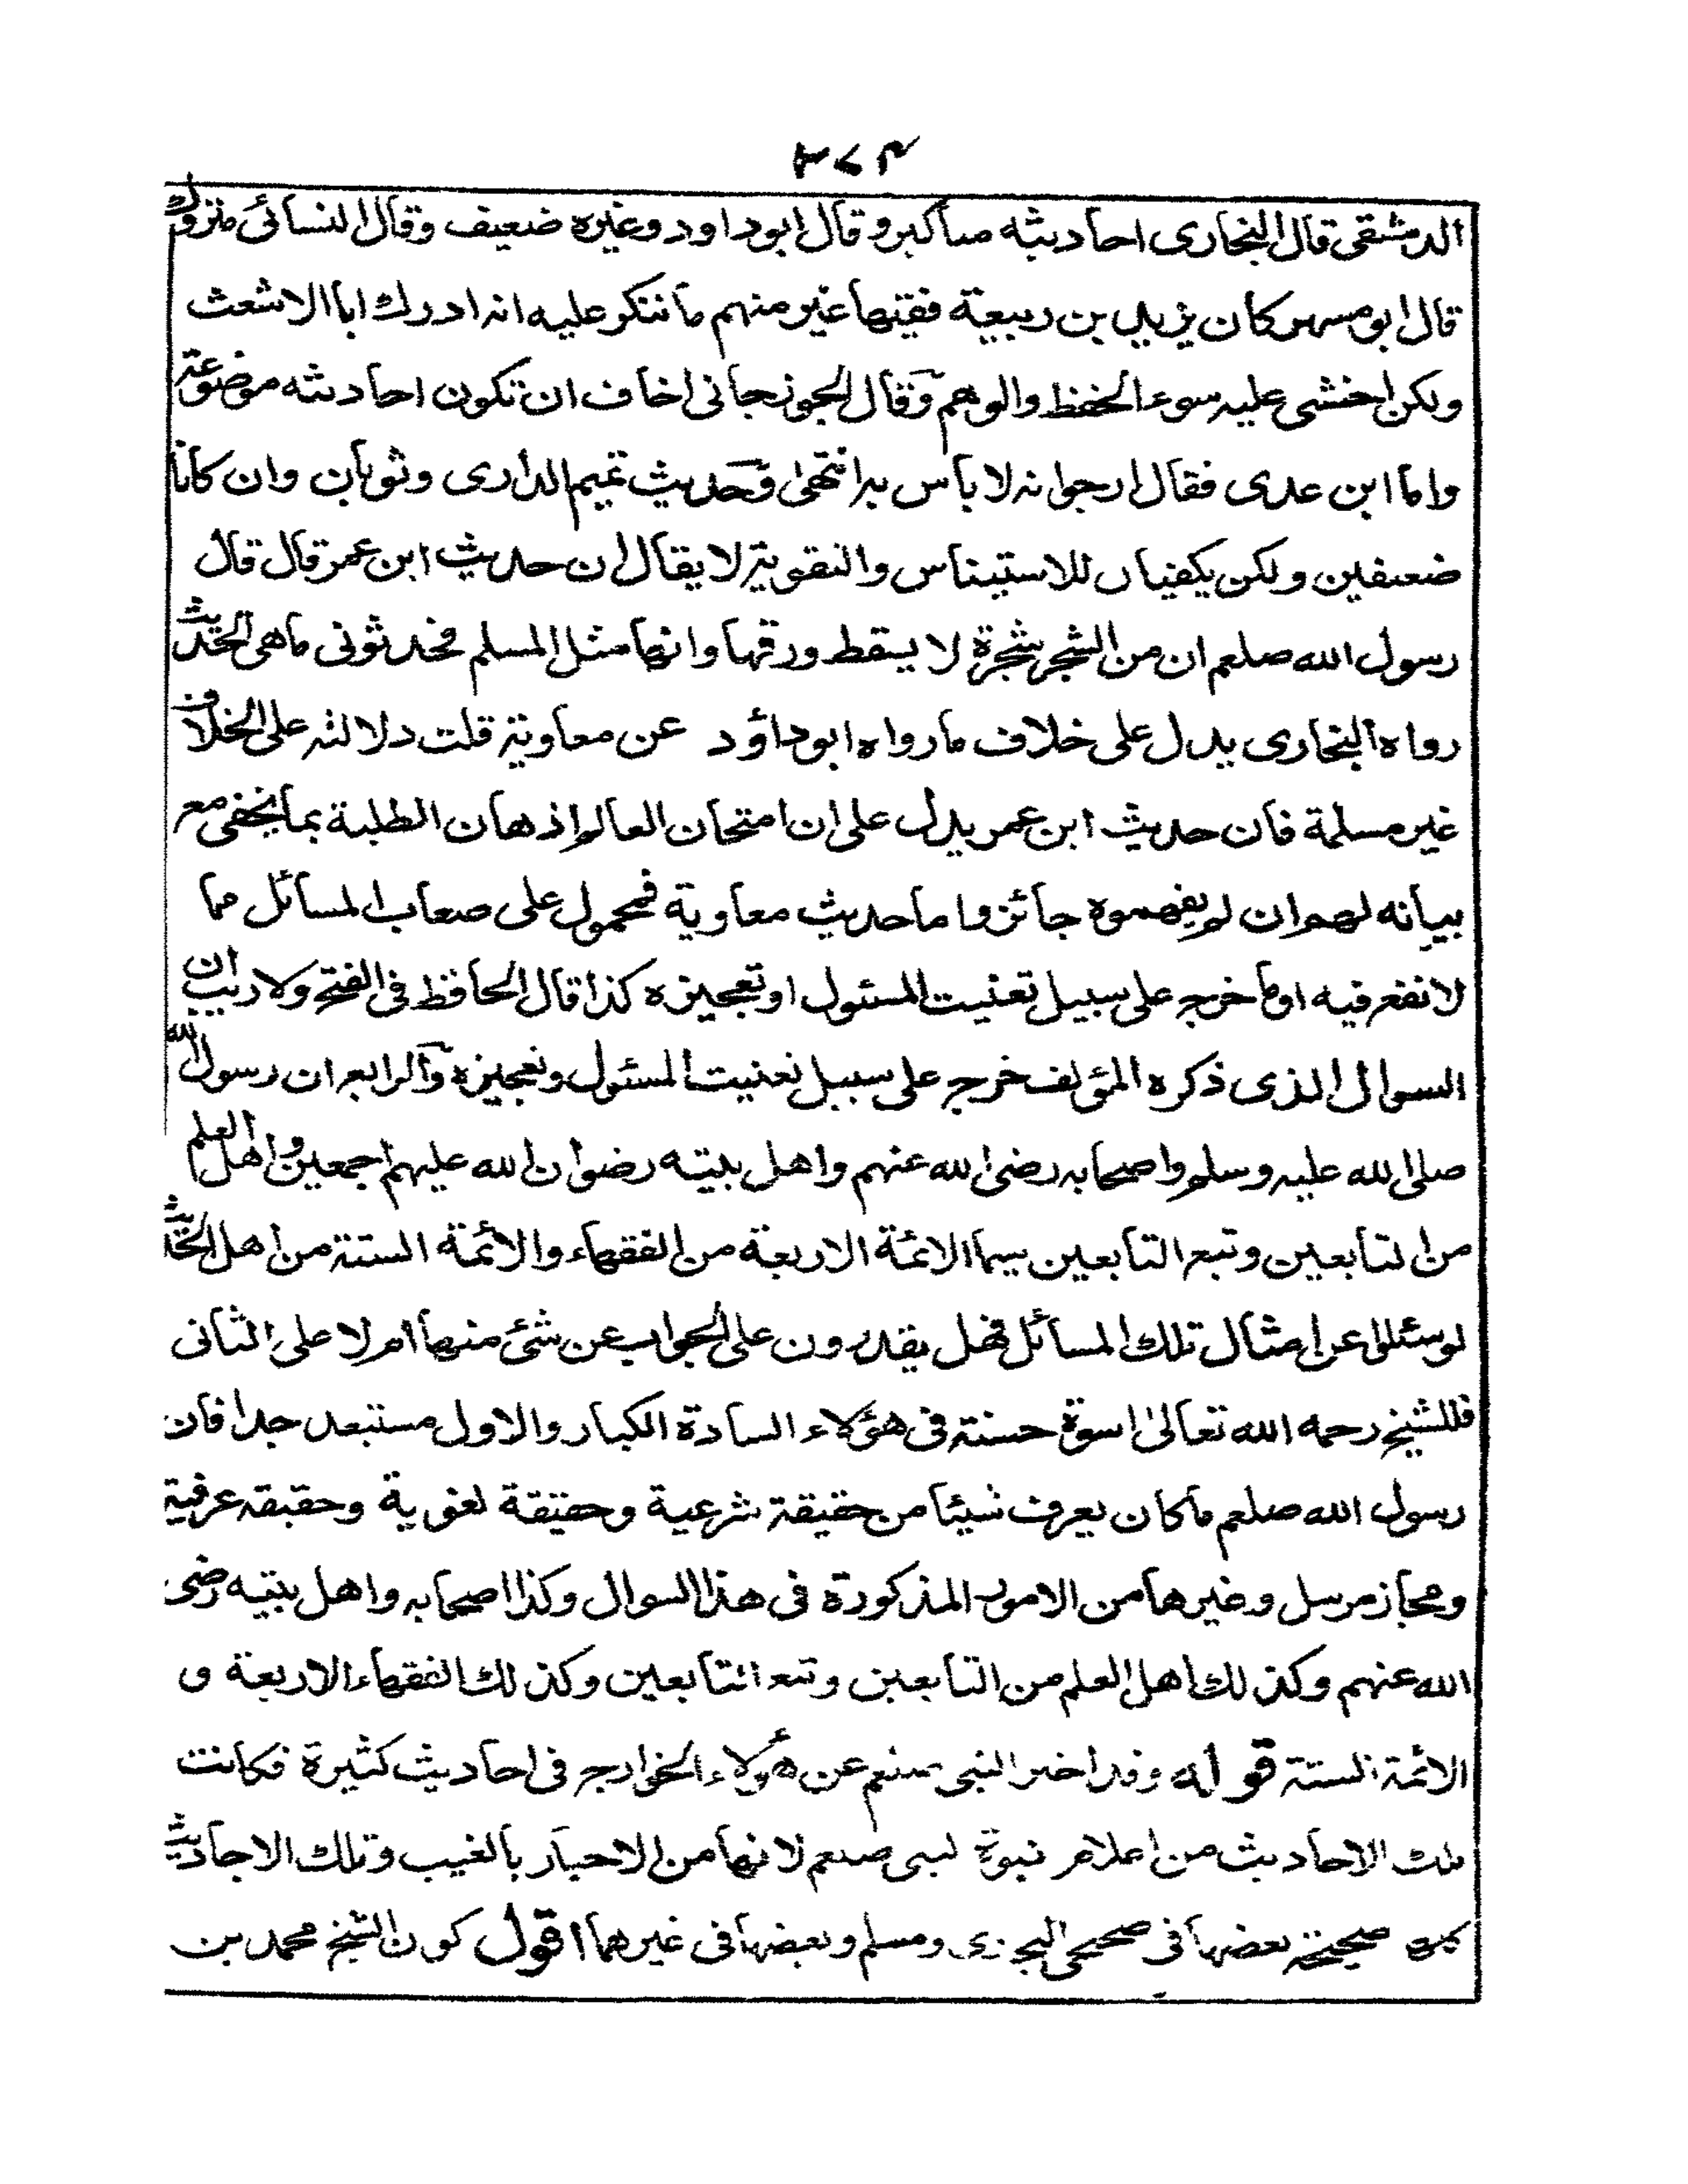 ٣٧٤
الدمشقى قال البخارى احاديثه مناكير وقال ابو داود وغيره ضعيف وقال النسائى متروك
قال ابو مسهر كان يزيد بن ربيعة فقيها غير متهم ما ننكر عليه انه ادرك ابا الاشعث
ولكن اخشى عليه سوء الحفظ والوهم وقال الجوزجانى اخاف ان تكون احاديثه موضوعة
واما ابن عدى فقال ارجو انه لا بأس به انتهى وحديث تميم الدارى وثوبان وان كانا
ضعيفين ولكن يكفيان للاستيناس والتقوية لا يقال ان حديث ابن عمر قال قال
رسول الله صلعم ان من الشجر شجرة لا يسقط ورقها وانها مثل المسلم فحدثونى ما هى الحديث
رواه البخارى يدل على خلاف ما رواه ابو داؤد عن معاوية قلت دلالته على الخلاف
غير مسلمة فان حديث ابن عمر يدل على ان امتحان العالم اذهان الطلبة بما يخفى مع
بيانه لهم ان لم يفهموه جائز واما حديث معاوية فمحمول على صعاب المسائل مما
لا نفع فيه او ما خرج على سبيل تعنيت المسئول او تعجيزه كذا قال الحافظ فى الفتح ولا ريب ان
السوال الذى ذكره المؤلف خرج على سبيل تعنيت المسئول وتعجيزه والرابع ان رسول الله
صلى الله عليه وسلم واصحابه رضى الله عنهم واهل بيته رضوان الله عليهم اجمعين واهل العلم
من التابعين وتبع التابعين سيما الائمة الاربعة من الفقهاء والائمة الستة من اهل الحديث
لو سئلوا عن امثال تلك المسائل فهل يقدرون على الجواب عن شئ منها ام لا على الثانى
فللشيخ رحمه الله تعالى اسوة حسنة فى هؤلاء السادة الكبار والاول مستبعد جدا فان
رسول الله صلعم ما كان يعرف شيئا من حقيقة شرعية وحقيقة لغوية وحقيقه عرفية
ومجاز مرسل وغيرها من الامور المذكورة فى هذا السوال وكذا اصحابه واهل بيته رضى
الله عنهم وكذلك اهل العلم من التابعين وتبع التابعين وكذلك الفقهاء الاربعة و
الائمة الستة قوله وقد اخبر النبى صلعم عن هؤلاء الخوارج فى احاديث كثيرة فكانت
تلك الاحاديث من اعلام نبوة النبى صلعم لانها من الاخبار بالغيب وتلك الاحاديث
كلها صحيحة بعضها فى صحيحى البخارى ومسلم وبعضها فى غيرهما اقول كون الشيخ محمد بن